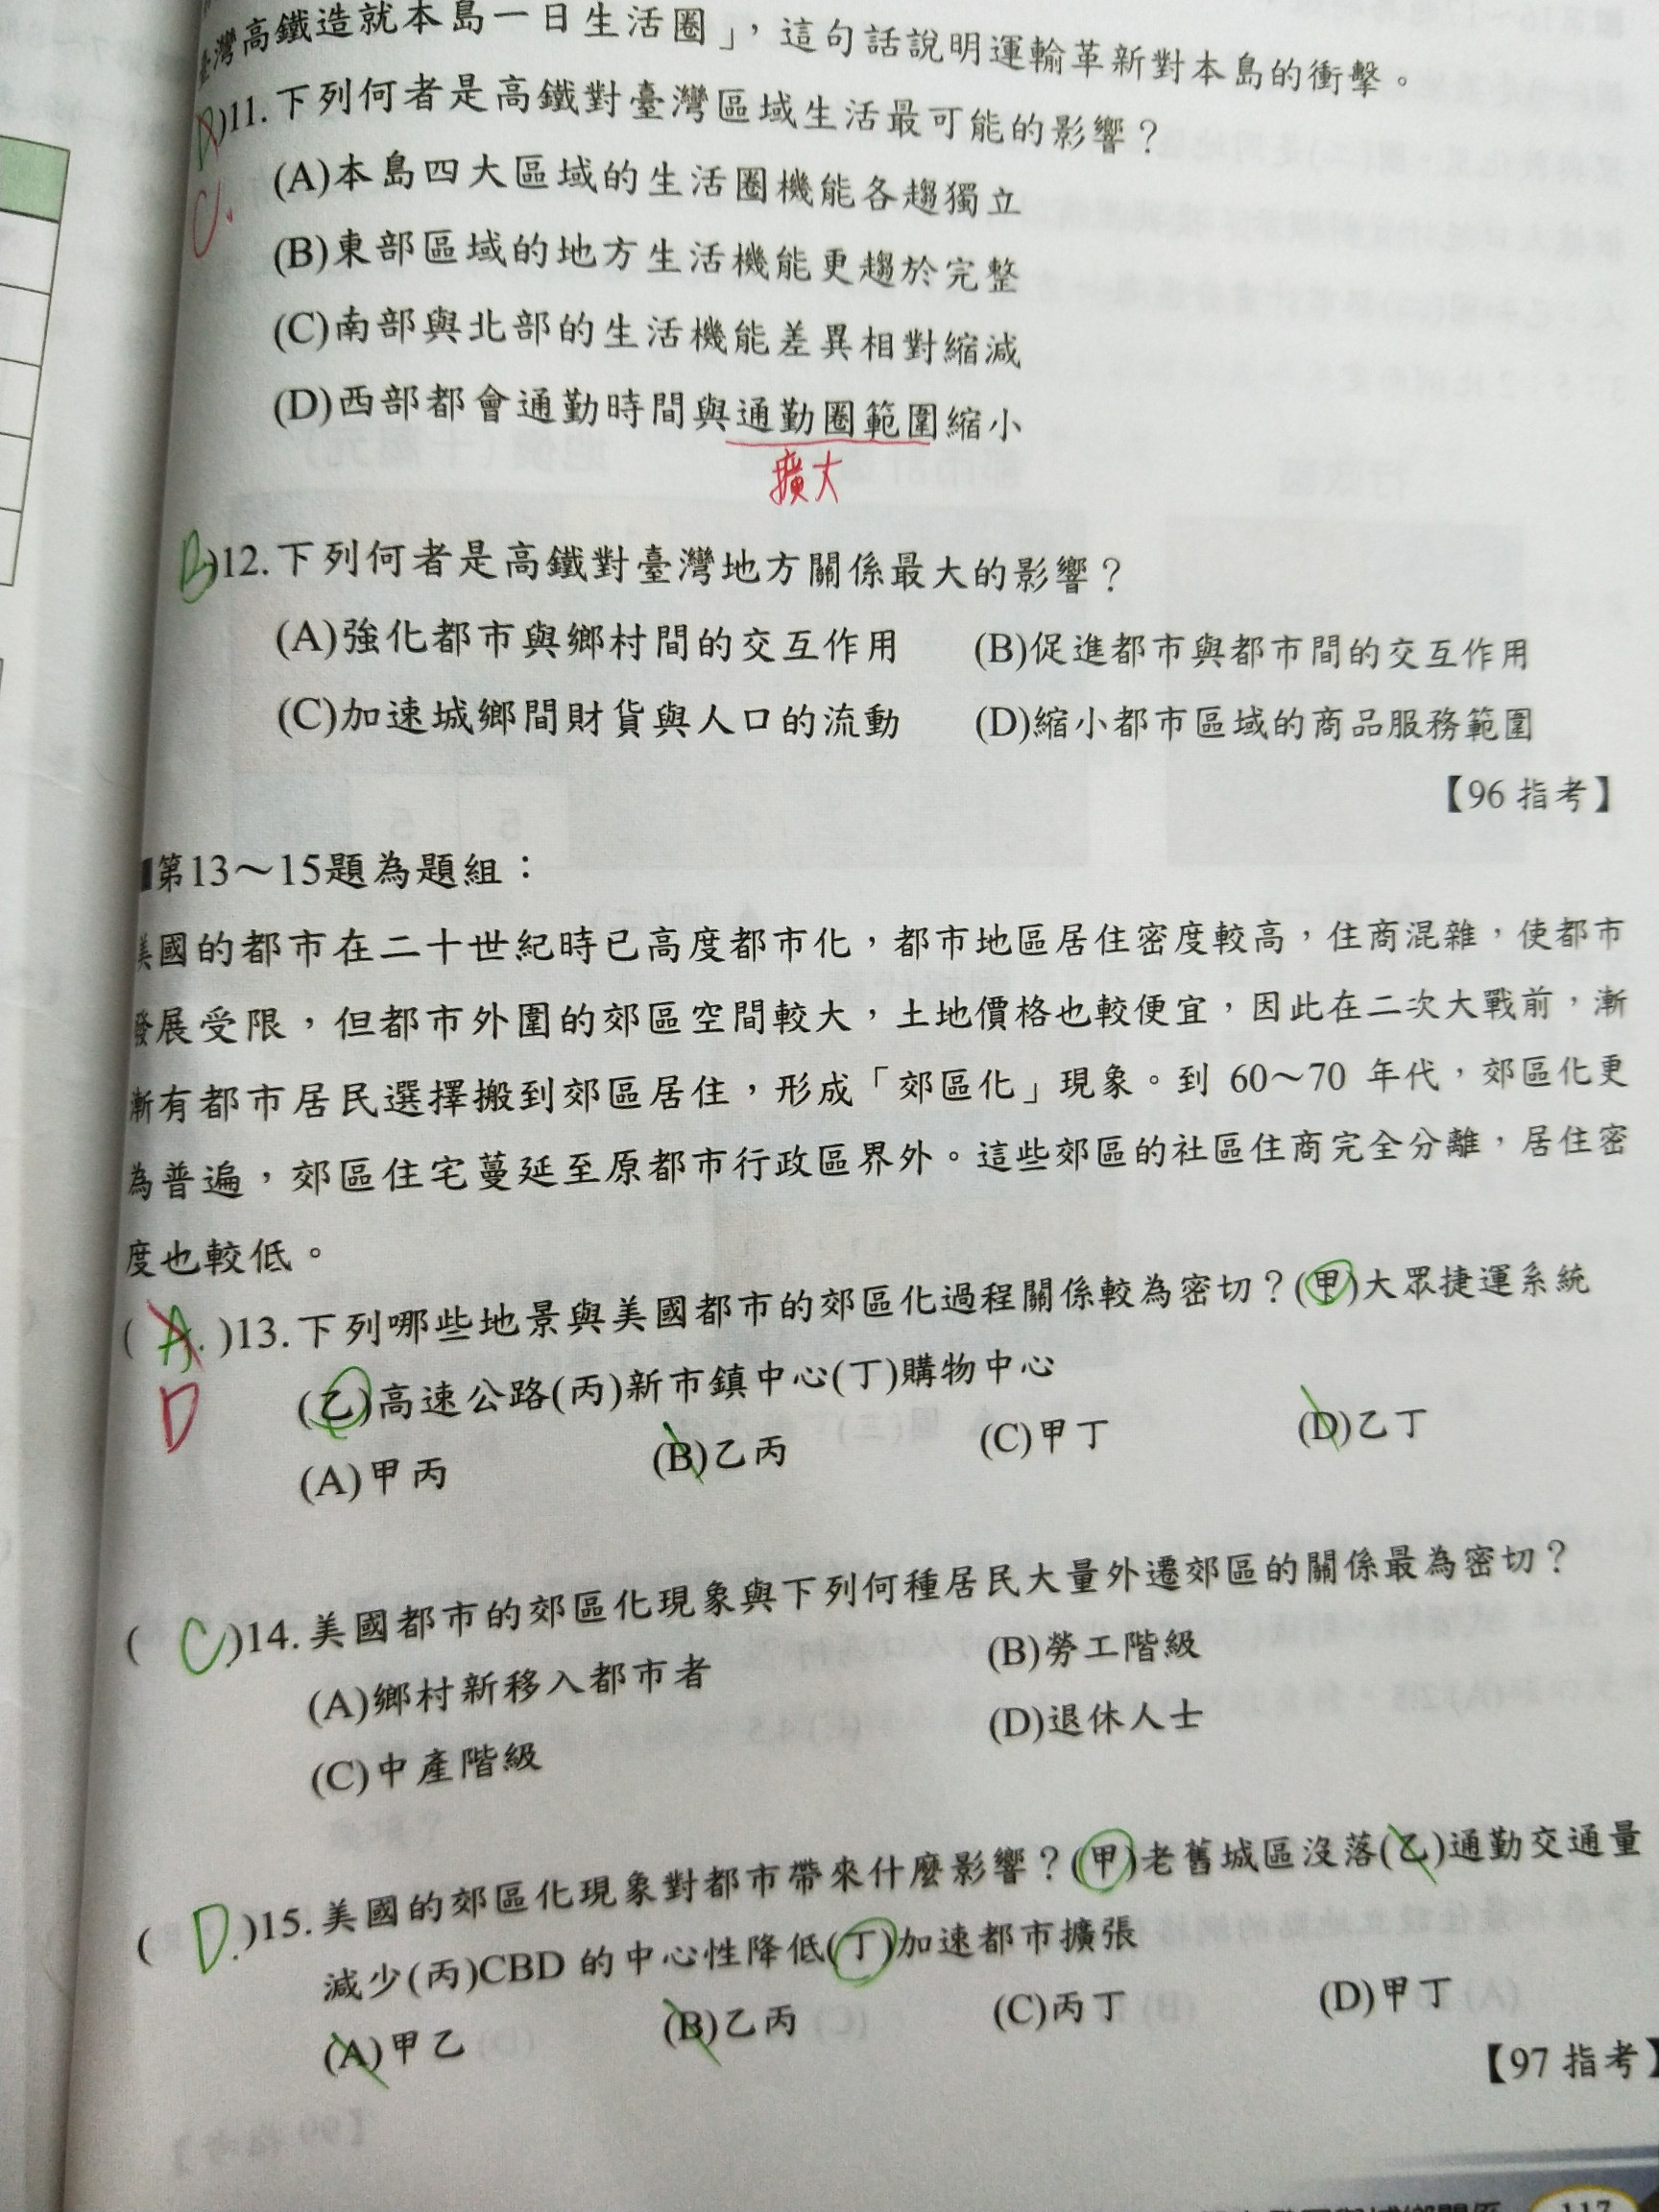 臺灣高鐵造就本島一日生活圈」，這句話說明運輸革新對本島的衝擊。
)11.下列何者是高鐵對臺灣區域生活最可能的影響？
C.
(A)本島四大區域的生活圈機能各趨獨立
(B)東部區域的地方生活機能更趨於完整
(C)南部與北部的生活機能差異相對縮減
(D)西部都會通勤時間與通勤圈範圍縮小
擴大
B)12.下列何者是高鐵對臺灣地方關係最大的影響？
(A)強化都市與鄉村間的交互作用 (B)促進都市與都市間的交互作用
(C)加速城鄉間財貨與人口的流動 (D)縮小都市區域的商品服務範圍
【96 指考】
■第13～15題為題組：
美國的都市在二十世紀時已高度都市化，都市地區居住密度較高，住商混雜，使都市
發展受限，但都市外圍的郊區空間較大，土地價格也較便宜，因此在二次大戰前，漸
漸有都市居民選擇搬到郊區居住，形成「郊區化」現象。到 60～70 年代，郊區化更
為普遍，郊區住宅蔓延至原都市行政區界外。這些郊區的社區住商完全分離，居住密
度也較低。
( A. )13.下列哪些地景與美國都市的郊區化過程關係較為密切？(甲)大眾捷運系統
D
(乙)高速公路(丙)新市鎮中心(丁)購物中心
(A)甲丙 (B)乙丙 (C)甲丁 (D)乙丁
( C )14.美國都市的郊區化現象與下列何種居民大量外遷郊區的關係最為密切？
(A)鄉村新移入都市者 (B)勞工階級
(C)中產階級 (D)退休人士
( D. )15.美國的郊區化現象對都市帶來什麼影響？(甲)老舊城區沒落(乙)通勤交通量
減少(丙)CBD 的中心性降低(丁)加速都市擴張
(A)甲乙 (B)乙丙 (C)丙丁 (D)甲丁
【97 指考】
117